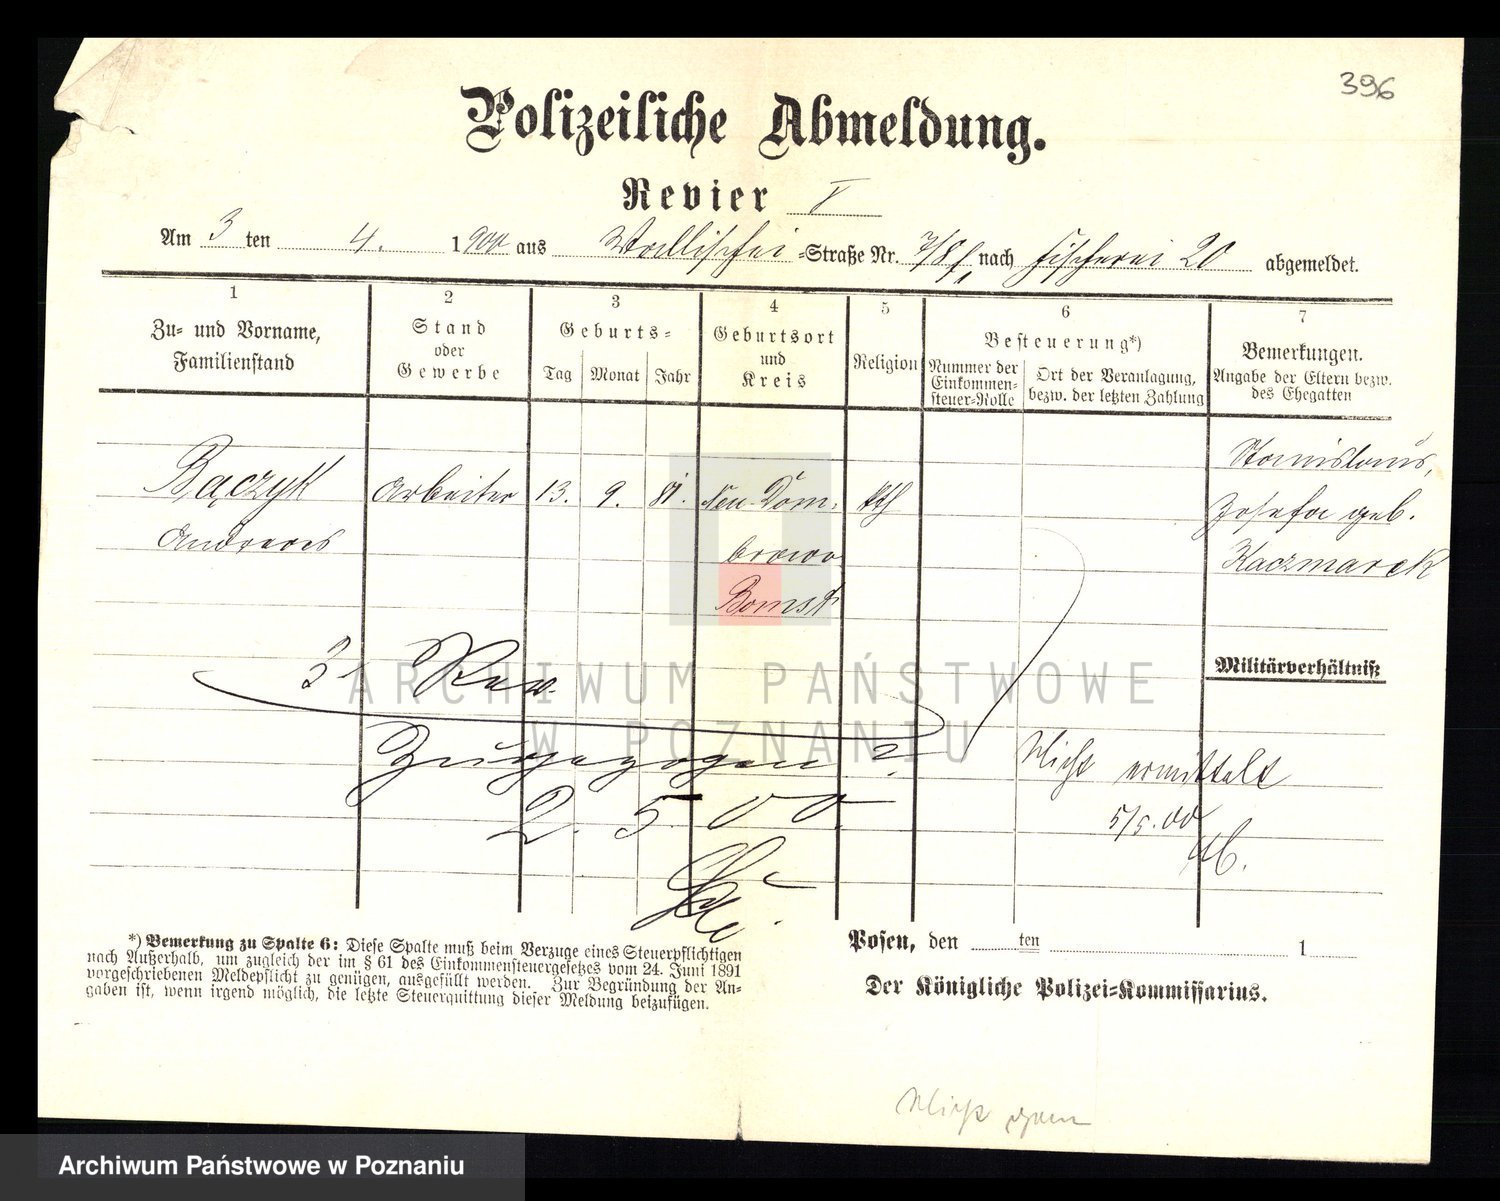 396
Polizeiliche Abmeldung.
Revier V
Am 3 ten 4. 1900 aus Wallischei -Straße Nr. 7/8 nach Fischerei 20 abgemeldet.
1 2 3 4 5 6 7
Zu- und Vorname, Familienstand
Stand oder Gewerbe
Geburts-
Tag Monat Jahr
Geburtsort und Kreis
Religion
Besteuerung*)
Nummer der Einkommen-steuer-Rolle
Ort der Veranlagung, bezw. der letzten Zahlung
Bemerkungen.
Angabe der Eltern bezw. des Ehegatten
Bączyk Arbeiter 13. 9. 81. Neu-Dom- kth Stanislaus,
Andreas browo Josefa geb.
Bomst Kaczmarek
3 Rev.
Militärverhältniß
Zurgezogen ?
2. 5. 00.
Nicht ermittelt
5/5.00
*) Bemerkung zu Spalte 6: Diese Spalte muß beim Verzuge eines Steuerpflichtigen
nach Außerhalb, um zugleich der im § 61 des Einkommensteuergesetzes vom 24. Juni 1891
vorgeschriebenen Meldepflicht zu genügen, ausgefüllt werden. Zur Begründung der An-
gaben ist, wenn irgend möglich, die letzte Steuerquittung dieser Meldung beizufügen.
Posen, den ten 1
Der Königliche Polizei-Kommissarius.
Nicht
ARCHIWUM PAŃSTWOWE
W POZNANIU
Archiwum Państwowe w Poznaniu